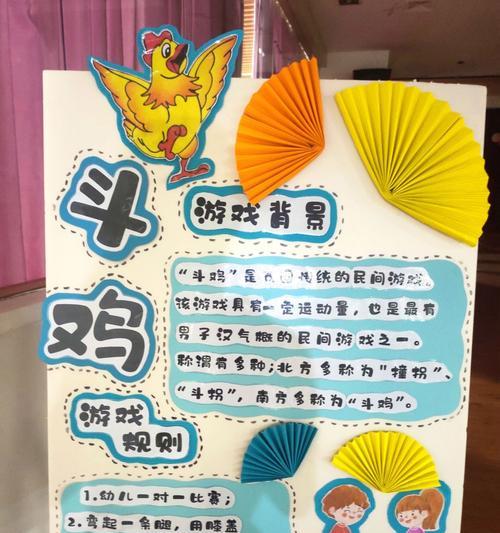 斗鸡
游戏背景
“斗鸡”是我国传统的民间游戏。
该游戏具有一定运动量，也是最有
男子汉气概的民间游戏之一。
称谓有多种；北方多称为“撞拐”、
“斗拐”，南方多称为“斗鸡”。
游戏
规则
1.幼儿一对一比赛；
2.弯起一条腿，用膝盖